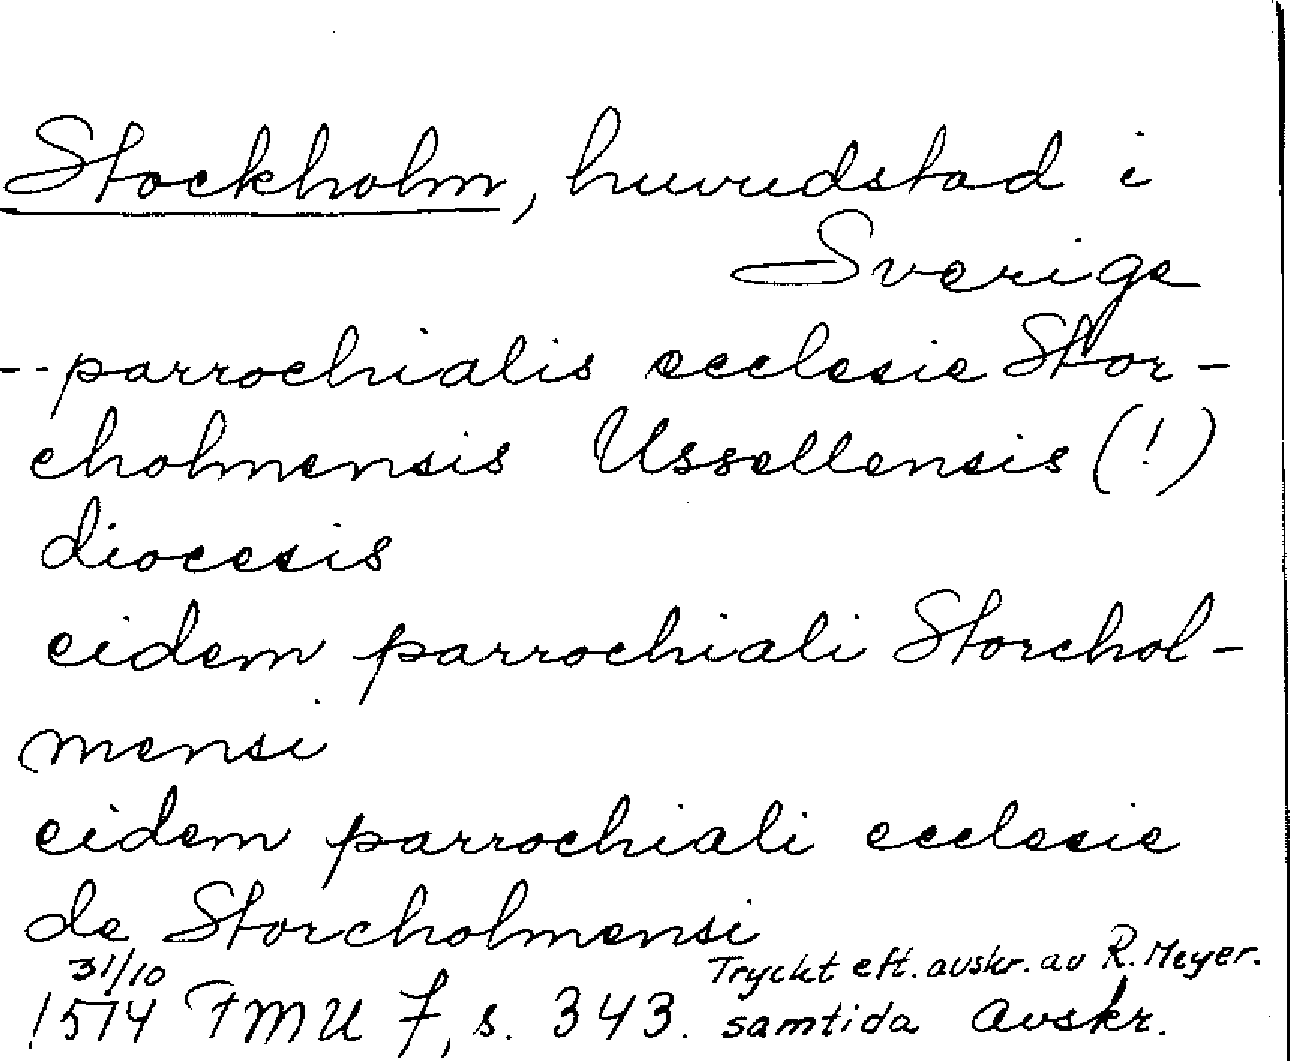 Stockholm, huvudstad i
Sverige
-- parrochialis ecclesie Stor-
cholmensis Ussellensis (!)
diocesis
eidem parrochiali Storchol-
mensi
eidem parrochiali ecclesie
de Storcholmensi
31/10 Tryckt eft. avskr. av R. Meyer.
1514 FMU 7, s. 343. samtida Avskr.